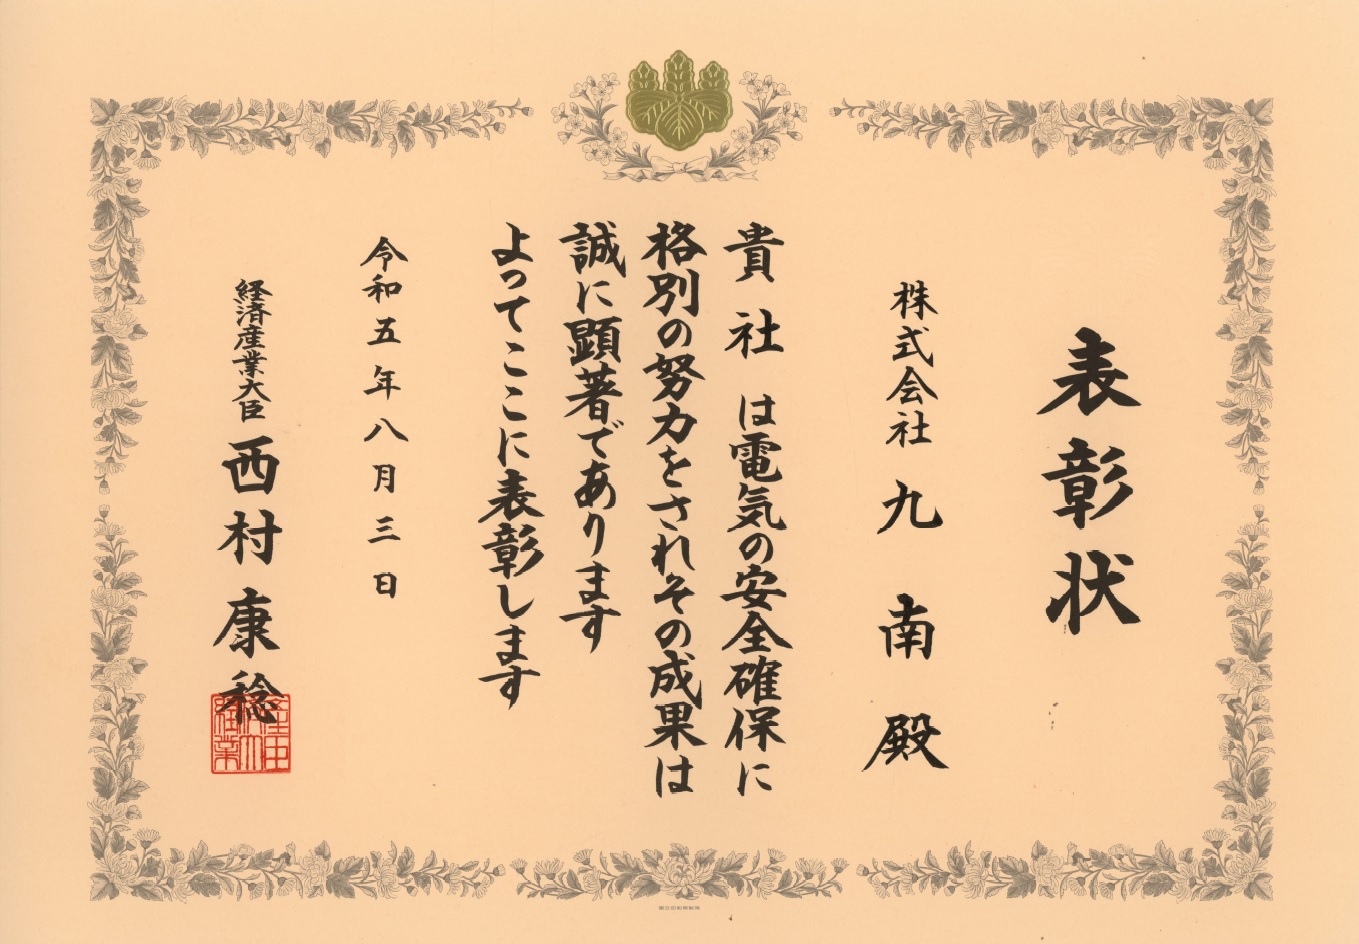 表彰状
株式会社九南殿
貴社は電気の安全確保に
格別の努力をされその成果は
誠に顕著であります
よってここに表彰します
令和五年八月三日
経済産業大臣 西村康稔